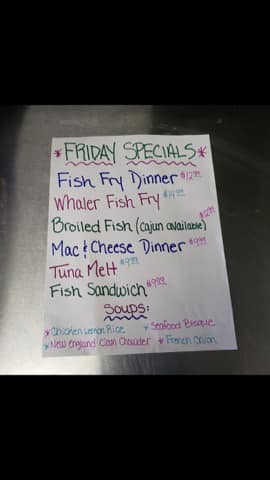 * FRIDAY SPECIALS *
Fish Fry Dinner $12.99
Whaler Fish Fry $14.99
Broiled Fish (cajun available) $12.99
Mac & Cheese Dinner $9.99
Tuna Melt $9.99
Fish Sandwich $9.99
SOUPS:
* Chicken Lemon Rice * Seafood Bisque
* New England Clam Chowder * French Onion